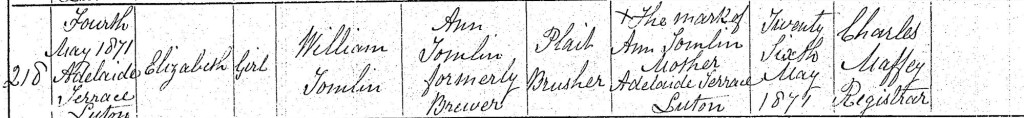 218
Fourth
May 1871
Adelaide
Terrace
Luton
Elizabeth
Girl
William
Tomlin
Ann
Tomlin
formerly
Brewer
Plait
Brusher
X The mark of
Ann Tomlin
Mother
Adelaide Terrace
Luton
Twenty
Sixth
May
1871
Charles
Maffey
Registrar